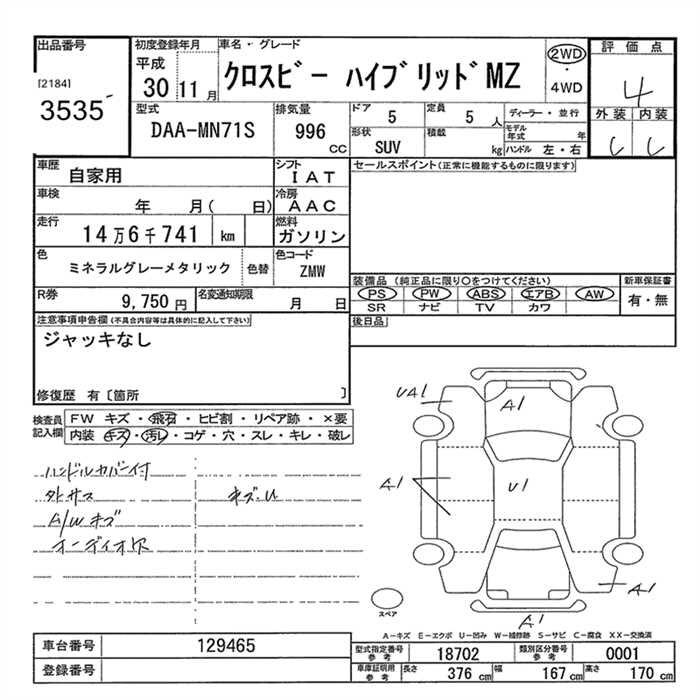 出品番号
[2184]
3535
初度登録年月
平成
30 11月
車名・グレード
クロスビー ハイブリッドMZ
2WD
・
4WD
評価点
4
外装 内装
し し
型式
DAA-MN71S
排気量
996
cc
ドア 5
定員 5 人
ディーラー・並行
形状 SUV
積載 kg
モデル年式 年
ハンドル 左・右
車歴 自家用
シフト IAT
セールスポイント(正常に機能するものに限ります)
車検 年 月( 日)
冷房 AAC
走行 14万6千741 km
燃料 ガソリン
色 ミネラルグレーメタリック 色替
色コード ZMW
装備品 (純正品に限り○をつけてください)
新車保証書
PS PW ABS エアB AW
有・無
SR ナビ TV カワ
R券 9,750円
名変通知期限 月 日
後日品
注意事項申告欄(不具合内容等は具体的に記入して下さい)
ジャッキなし
修復歴 有〔箇所 〕
検査員記入欄
FW キズ・飛石・ヒビ割・リペア跡・×要
内装 キズ・汚レ・コゲ・穴・スレ・キレ・破レ
ハンドルカバー付
外キズ
キズ.U
A/Wキズ
オーディオ欠
UA1
A1
A1
U1
A1
A1
スペア
A-キズ E-エクボ U-凹み W-補修跡 S-サビ C-腐食 XX-交換済
車台番号 129465
登録番号
型式指定番号 参考 18702
類別区分番号 参考 0001
車庫証明用 参考 長さ 376cm 幅 167cm 高さ 170cm